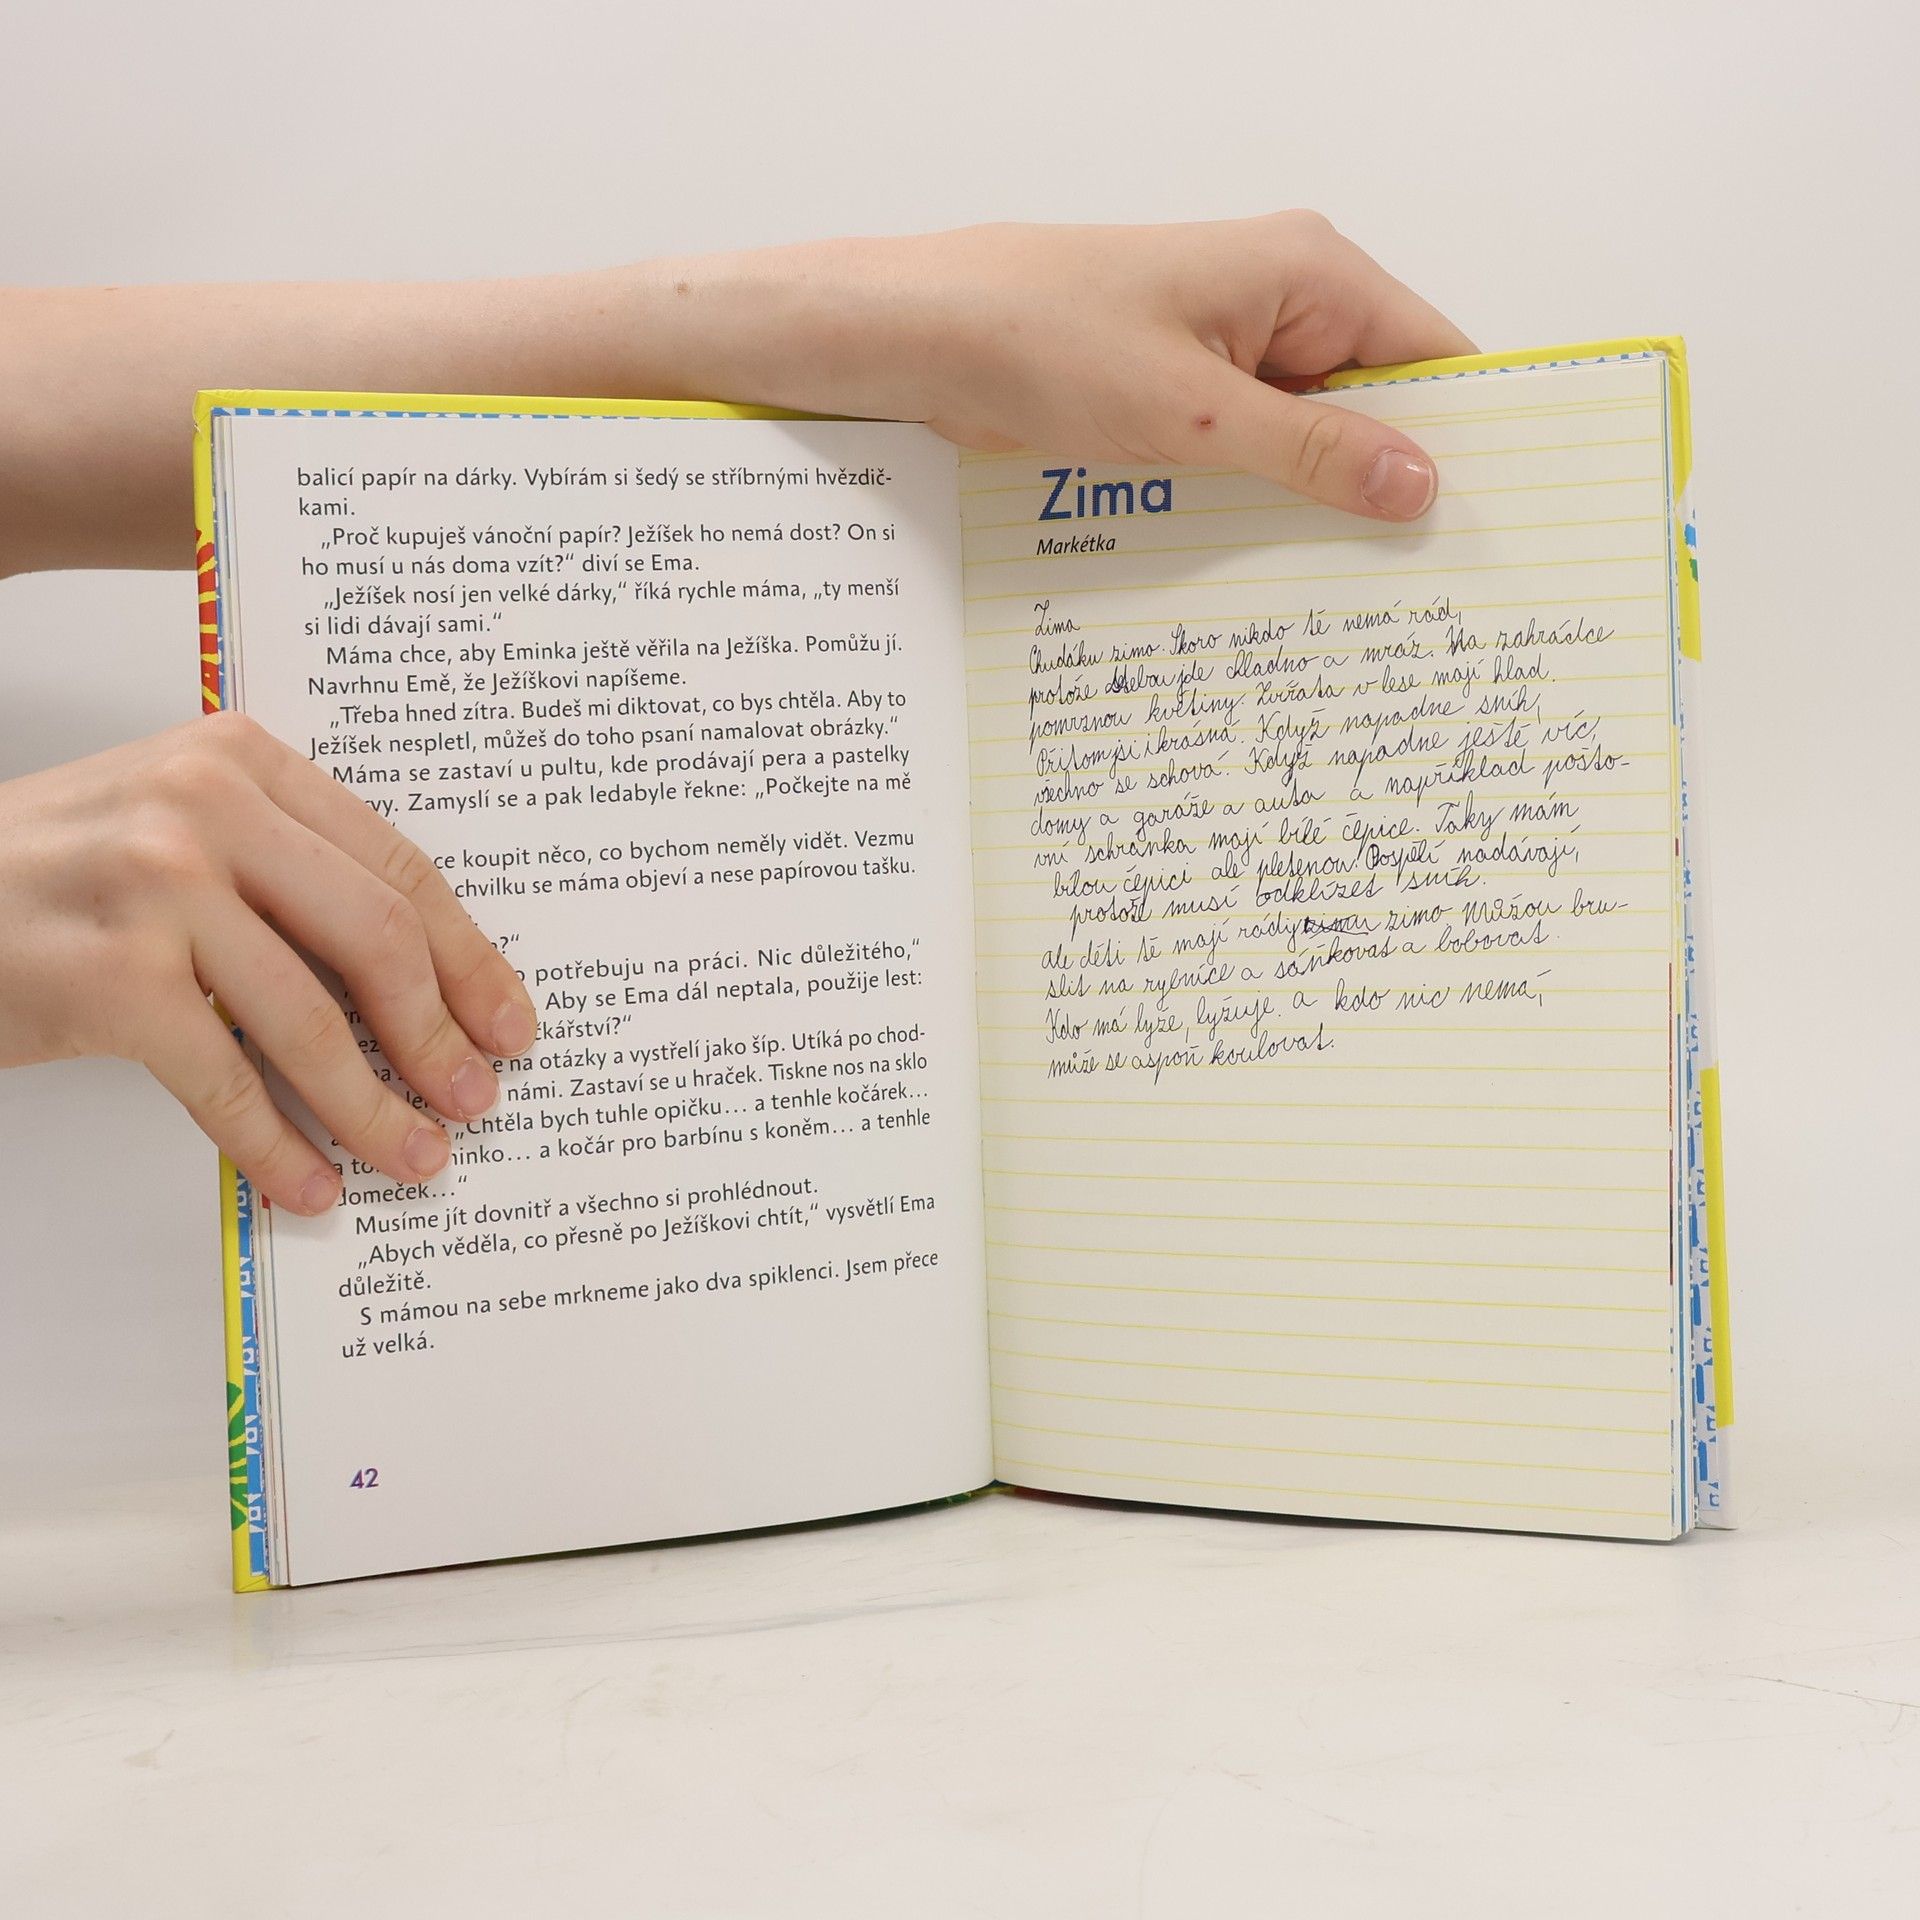 balicí papír na dárky. Vybírám si šedý se stříbrnými hvězdič-
kami.
„Proč kupuješ vánoční papír? Ježíšek ho nemá dost? On si
ho musí u nás doma vzít?“ diví se Ema.
„Ježíšek nosí jen velké dárky,“ říká rychle máma, „ty menší
si lidi dávají sami.“
Máma chce, aby Eminka ještě věřila na Ježíška. Pomůžu jí.
Navrhnu Emě, že Ježíškovi napíšeme.
„Třeba hned zítra. Budeš mi diktovat, co bys chtěla. Aby to
Ježíšek nespletl, můžeš do toho psaní namalovat obrázky.“
Máma se zastaví u pultu, kde prodávají pera a pastelky
Zamyslí se a pak ledabyle řekne: „Počkejte na mě
koupit něco, co bychom neměly vidět. Vezmu
chvilku se máma objeví a nese papírovou tašku.
potřebuju na práci. Nic důležitého,“
Aby se Ema dál neptala, použije lest:
na otázky a vystřelí jako šíp. Utíká po chod-
námi. Zastaví se u hraček. Tiskne nos na sklo
„Chtěla bych tuhle opičku… a tenhle kočárek…
a kočár pro barbínu s koněm… a tenhle
domeček…“
Musíme jít dovnitř a všechno si prohlédnout.
„Abych věděla, co přesně po Ježíškovi chtít,“ vysvětlí Ema
důležitě.
S mámou na sebe mrkneme jako dva spiklenci. Jsem přece
už velká.
42
Zima
Markétka
Zima
Chudáku zimo. Skoro nikdo tě nemá rád,
protože jde chladno a mráz. Na zahrádce
pomrznou květiny. Zvířata v lese mají hlad.
Přitom jsi i krásná. Když napadne sníh,
všechno se schová. Když napadne ještě víc,
domy a garáže a auta a například pošto-
vní schránka mají bílé čepice. Taky mám
bílou čepici ale pletenou. Dospělí nadávají,
protože musí odklízet sníh.
ale děti tě mají rády zimo Můžou bru-
slit na rybníce a sáňkovat a bobovat.
Kdo má lyže, lyžuje. a kdo nic nemá,
může se aspoň koulovat.